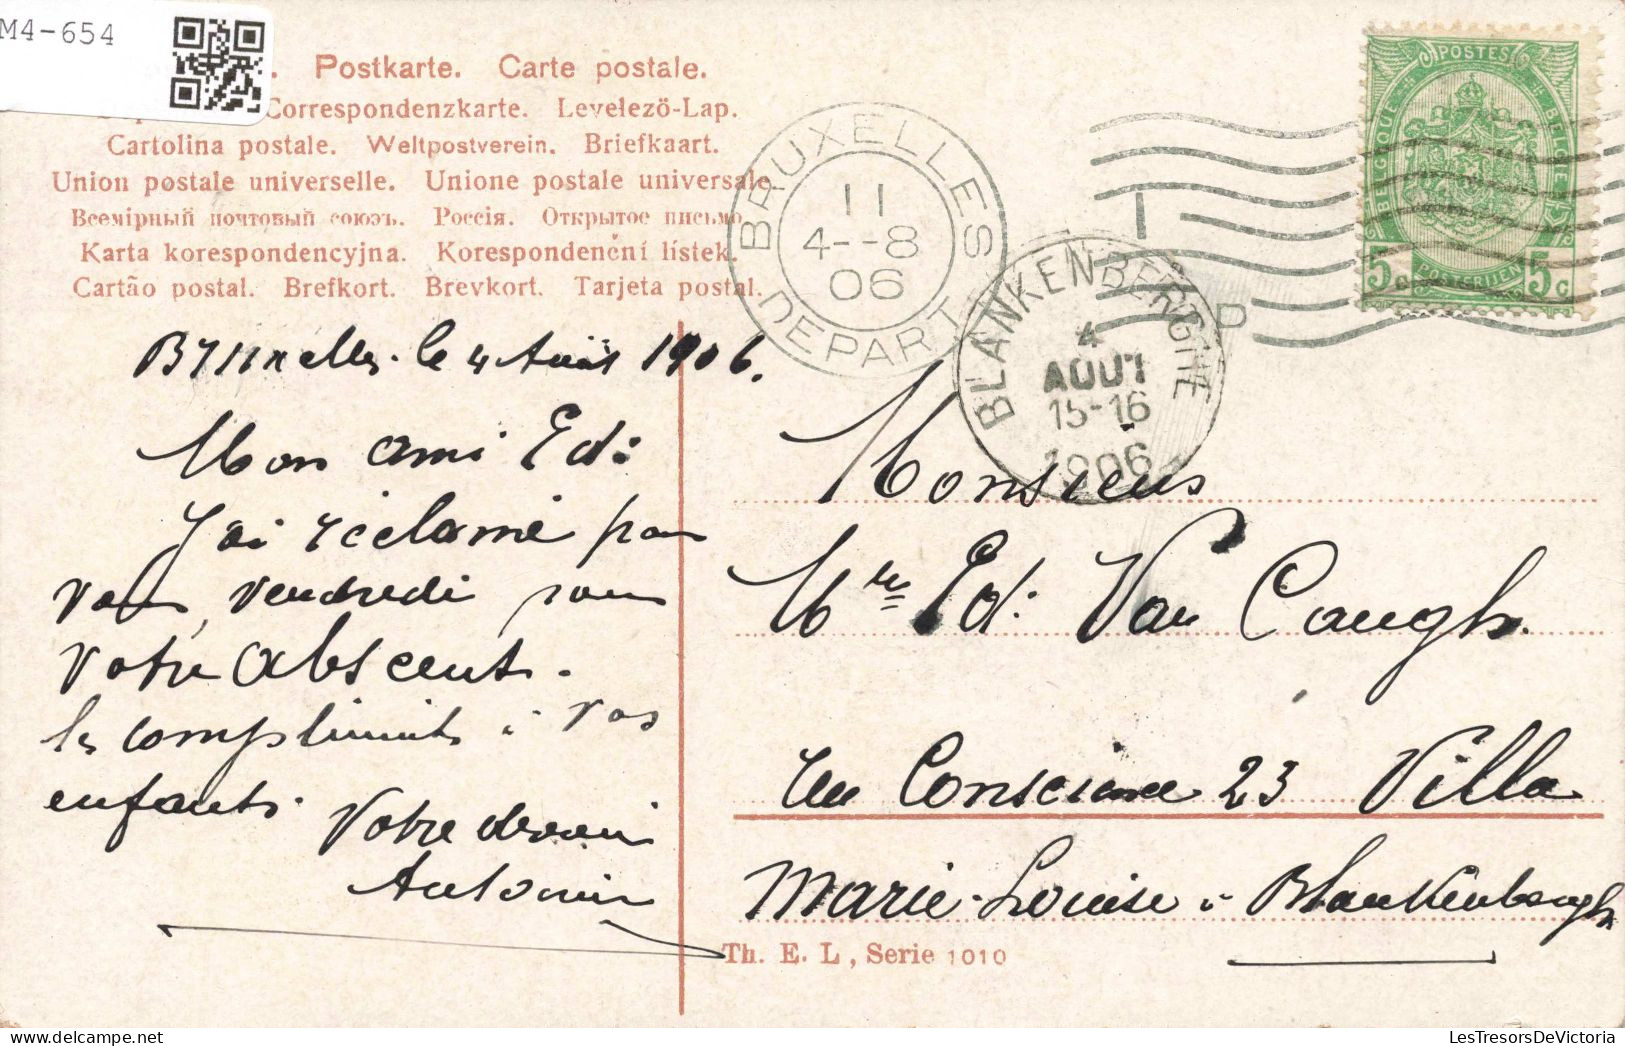 M4-654
Postkarte. Carte postale.
Correspondenzkarte. Levelező-Lap.
Cartolina postale. Weltpostverein. Briefkaart.
Union postale universelle. Unione postale universale
Всемірный почтовый союзъ. Россія. Открытое письмо
Karta korespondencyjna. Korespondenční lístek.
Cartão postal. Brefkort. Brevkort. Tarjeta postal.
BRUXELLES
11
4--8
06
DEPART
BLANKENBERGHE
4
AOUT
15-16
1906
POSTES
BELGIQUE BELGIE
5c POSTERIJEN 5c
Bruxelles. le 4 Août 1906.
Mon ami Ed:
J'ai réclamé pour
vous, vendredi pour
votre absent.
les compliments à vos
enfants. Votre
Antonin
Monsieur
Mre Ed: Van Caugh.
Conscience 23 Villa
Marie-Louise à Blankenberghe
Th. E. L, Serie 1010
LesTresorsDeVictoria